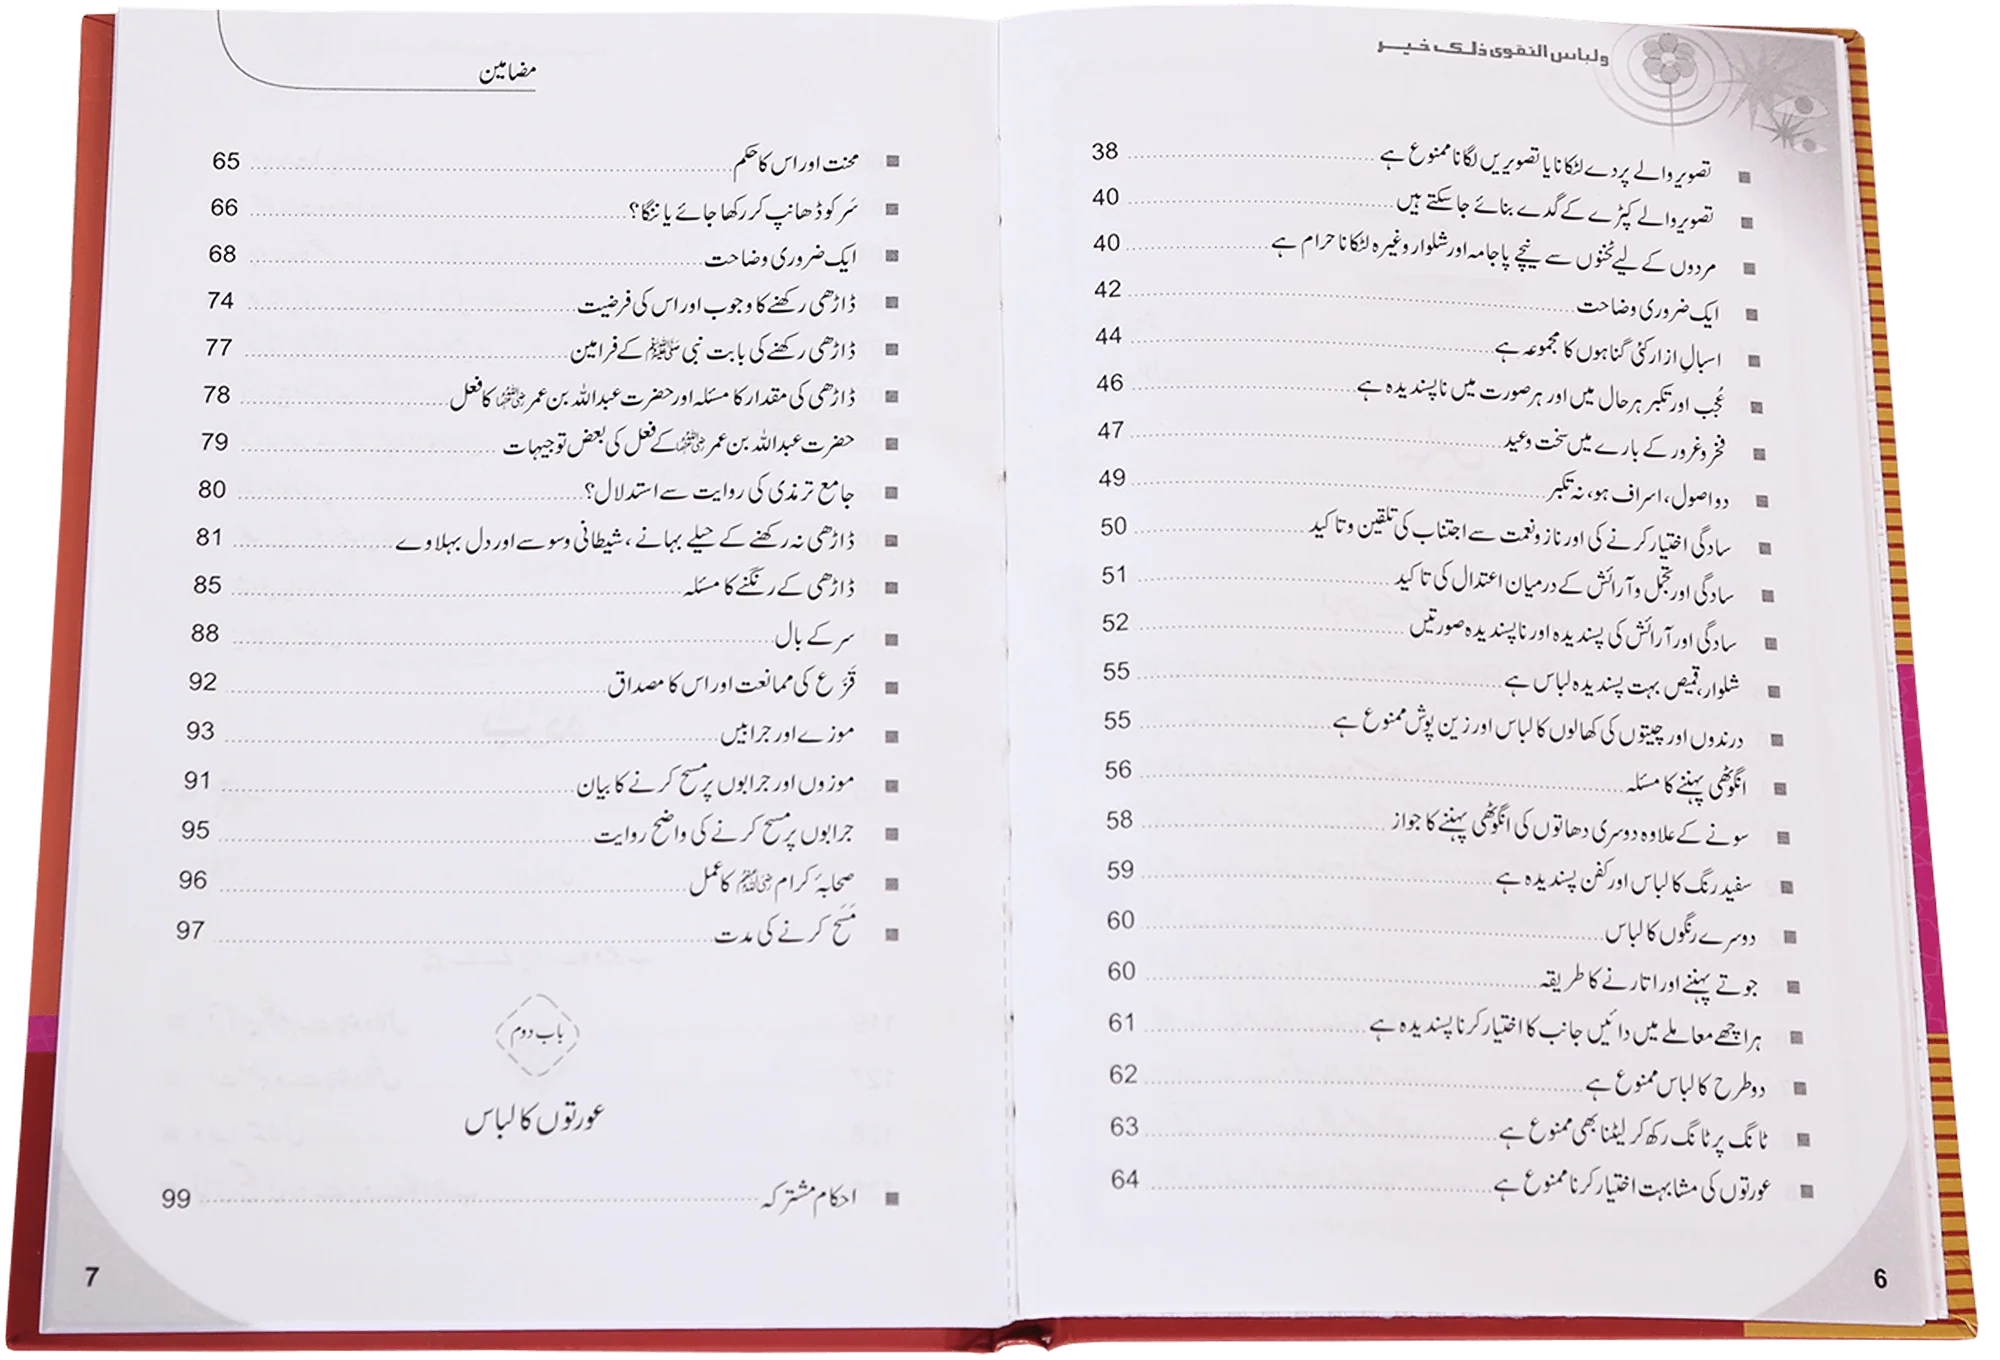 ولباس التقوى ذلك خير
تصویر والے پردے لٹکانا یا تصویریں لگانا ممنوع ہے 38
تصویر والے کپڑے کے گدے بنائے جا سکتے ہیں 40
مردوں کے لیے ٹخنوں سے نیچے پاجامہ اور شلوار وغیرہ لٹکانا حرام ہے 40
ایک ضروری وضاحت 42
اسبالِ ازار کئی گناہوں کا مجموعہ ہے 44
عُجب اور تکبر ہر حال میں اور ہر صورت میں ناپسندیدہ ہے 46
فخر و غرور کے بارے میں سخت وعید 47
دو اصول، اسراف ہو، نہ تکبر 49
سادگی اختیار کرنے کی اور ناز و نعمت سے اجتناب کی تلقین و تاکید 50
سادگی اور تجمل و آرائش کے درمیان اعتدال کی تاکید 51
سادگی اور آرائش کی پسندیدہ اور ناپسندیدہ صورتیں 52
شلوار، قمیص بہت پسندیدہ لباس ہے 55
درندوں اور چیتوں کی کھالوں کا لباس اور زین پوش ممنوع ہے 55
انگوٹھی پہننے کا مسئلہ 56
سونے کے علاوہ دوسری دھاتوں کی انگوٹھی پہننے کا جواز 58
سفید رنگ کا لباس اور کفن پسندیدہ ہے 59
دوسرے رنگوں کا لباس 60
جوتے پہننے اور اتارنے کا طریقہ 60
ہر اچھے معاملے میں دائیں جانب کا اختیار کرنا پسندیدہ ہے 61
دو طرح کا لباس ممنوع ہے 62
ٹانگ پر ٹانگ رکھ کر لیٹنا بھی ممنوع ہے 63
عورتوں کی مشابہت اختیار کرنا ممنوع ہے 64
6
مضامین
مخنث اور اس کا حکم 65
سَر کو ڈھانپ کر رکھا جائے یا ننگا؟ 66
ایک ضروری وضاحت 68
ڈاڑھی رکھنے کا وجوب اور اس کی فرضیت 74
ڈاڑھی رکھنے کی بابت نبی ﷺ کے فرامین 77
ڈاڑھی کی مقدار کا مسئلہ اور حضرت عبداللہ بن عمر رضی اللہ عنہما کا فعل 78
حضرت عبداللہ بن عمر رضی اللہ عنہما کے فعل کی بعض توجیہات 79
جامع ترمذی کی روایت سے استدلال؟ 80
ڈاڑھی نہ رکھنے کے حیلے بہانے، شیطانی وسوسے اور دل بہلاوے 81
ڈاڑھی کے رنگنے کا مسئلہ 85
سر کے بال 88
قَزَع کی ممانعت اور اس کا مصداق 92
موزے اور جرابیں 93
موزوں اور جرابوں پر مسح کرنے کا بیان 91
جرابوں پر مسح کرنے کی واضح روایت 95
صحابۂ کرام رضی اللہ عنہم کا عمل 96
مَسَح کرنے کی مدت 97
باب دوم
عورتوں کا لباس
احکام مشترکہ 99
7